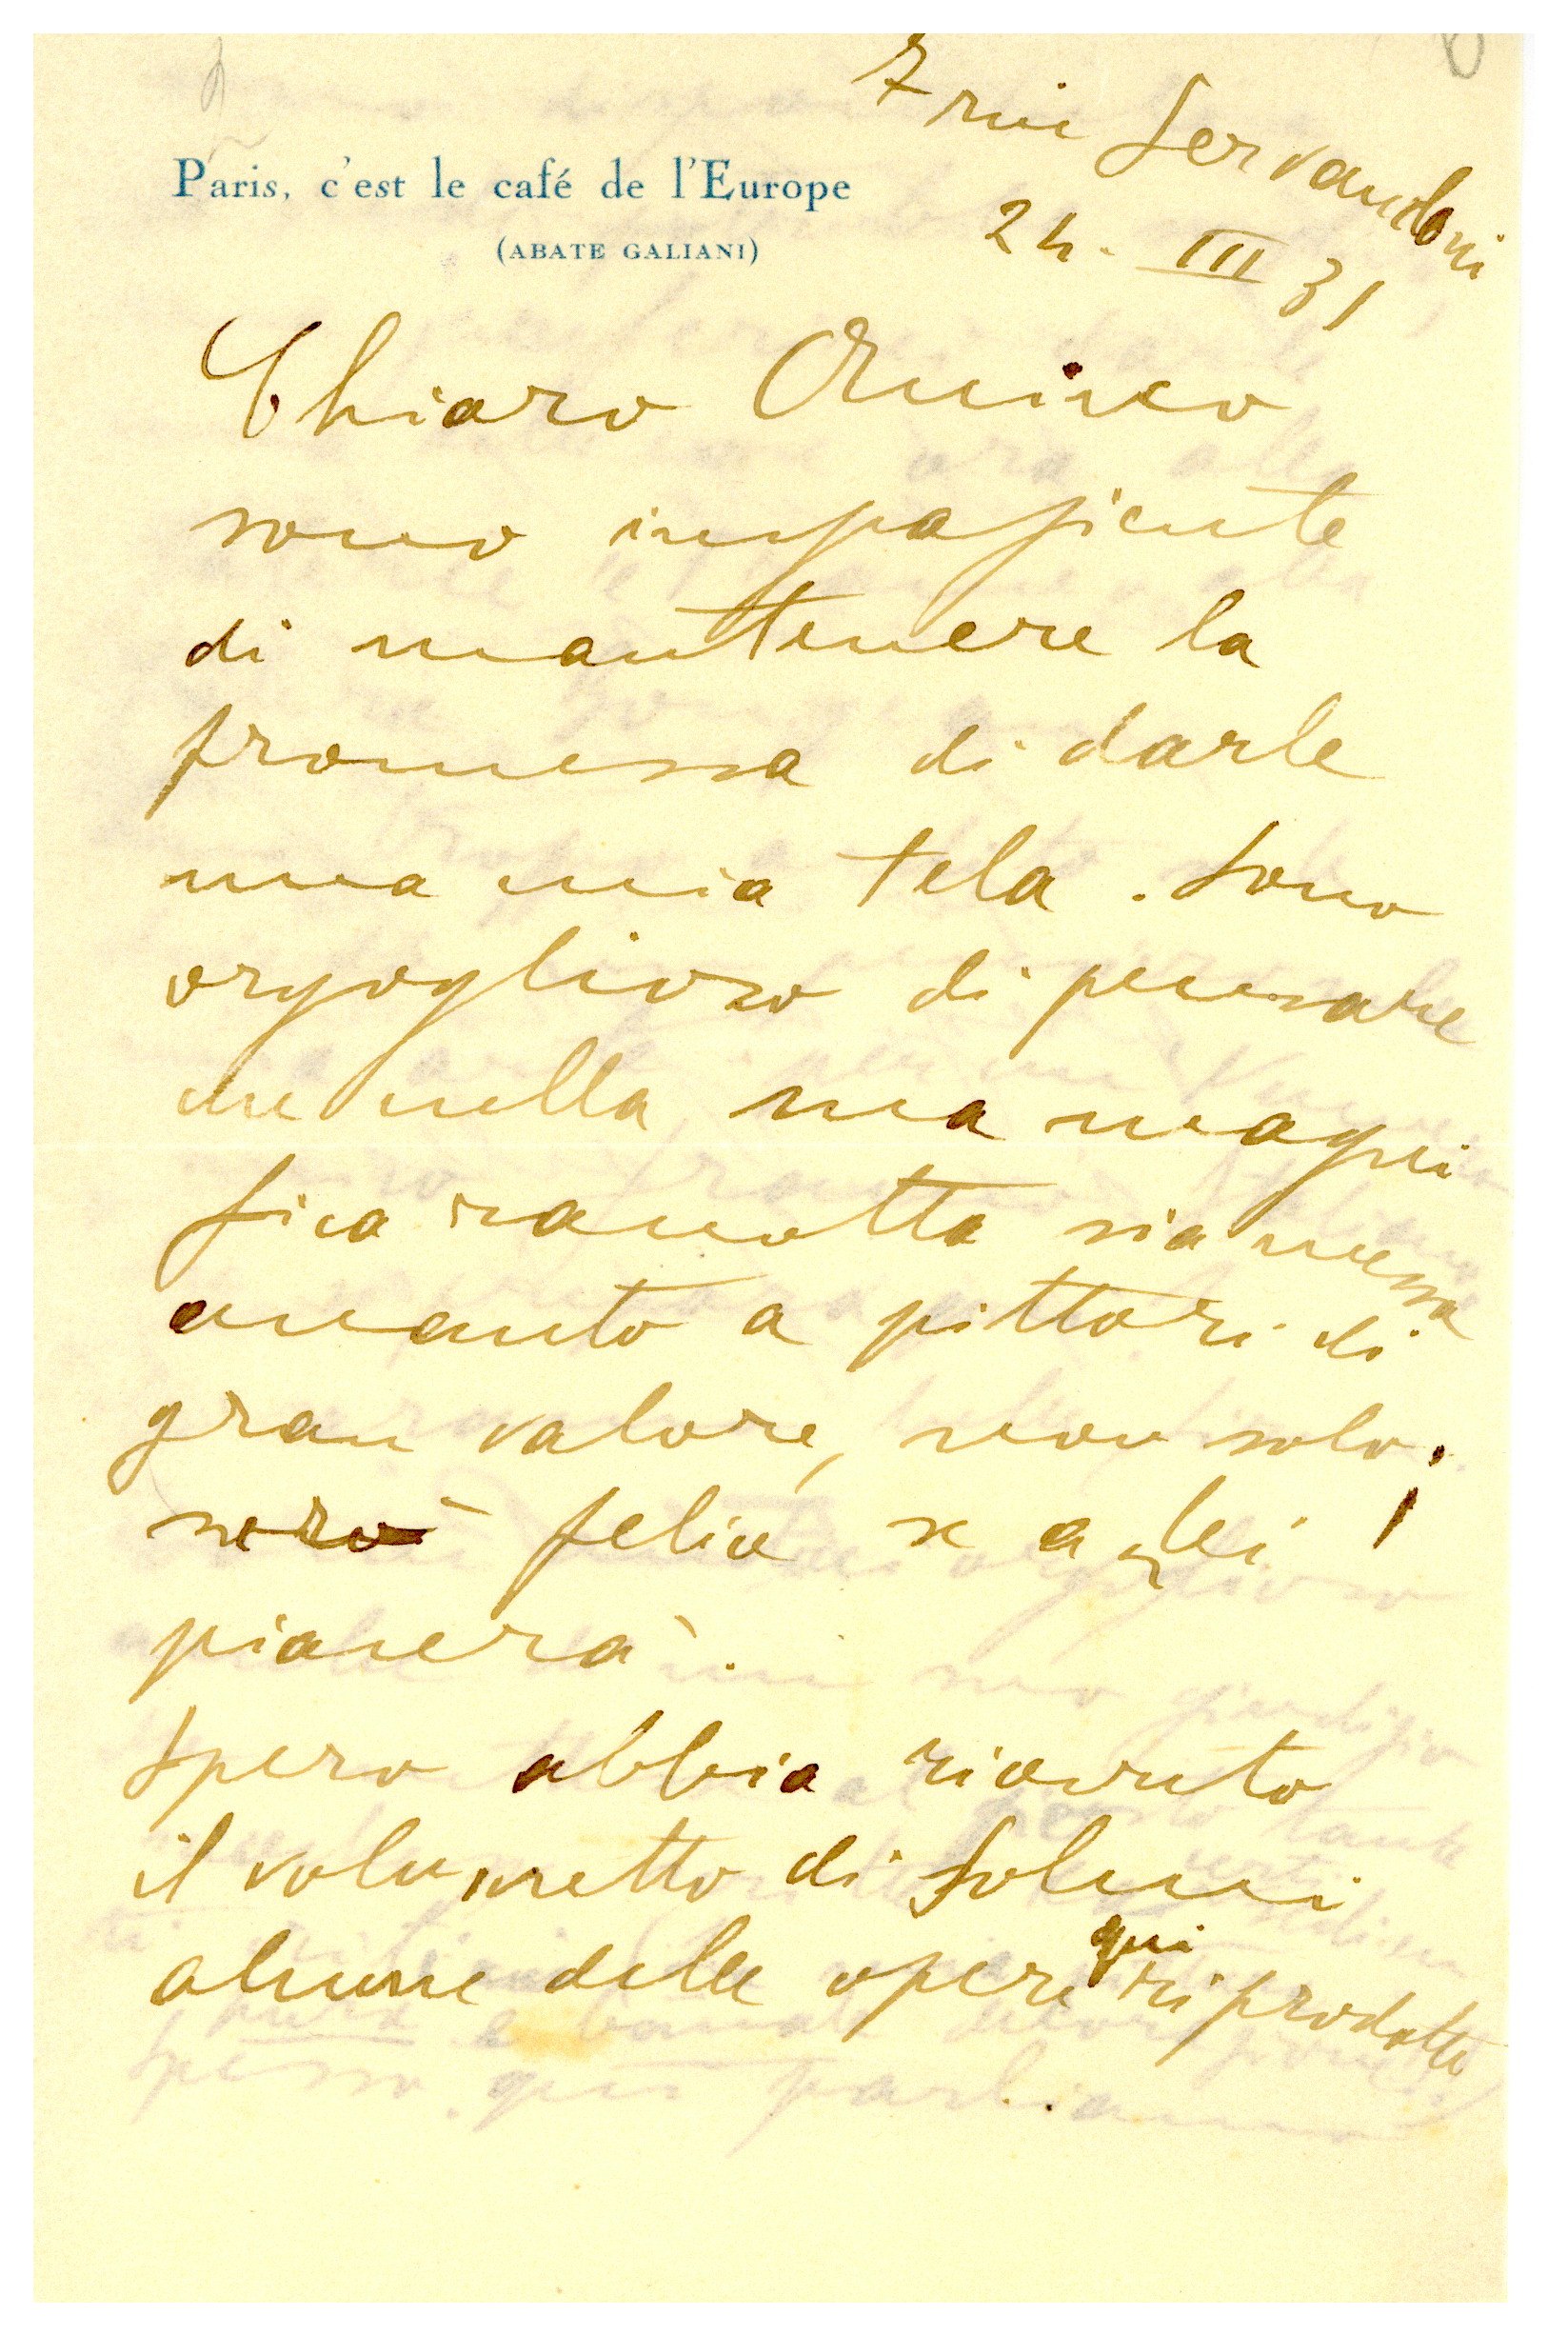 7 rue Servandoni
Paris, c'est le café de l'Europe
(ABATE GALIANI)
24. III 31
Chiaro Amico
sono impaziente
di mantenere la
promessa di darle
una mia tela. Sono
orgoglioso di pensare
che nella sua magni
fica racolta sia messa
accanto a pittori di
gran valore, non solo.
sarò felice se a Lei
piacerà.
Spero abbia ricevuto
il volumetto di Solmi
alcune delle opere qui riprodotte